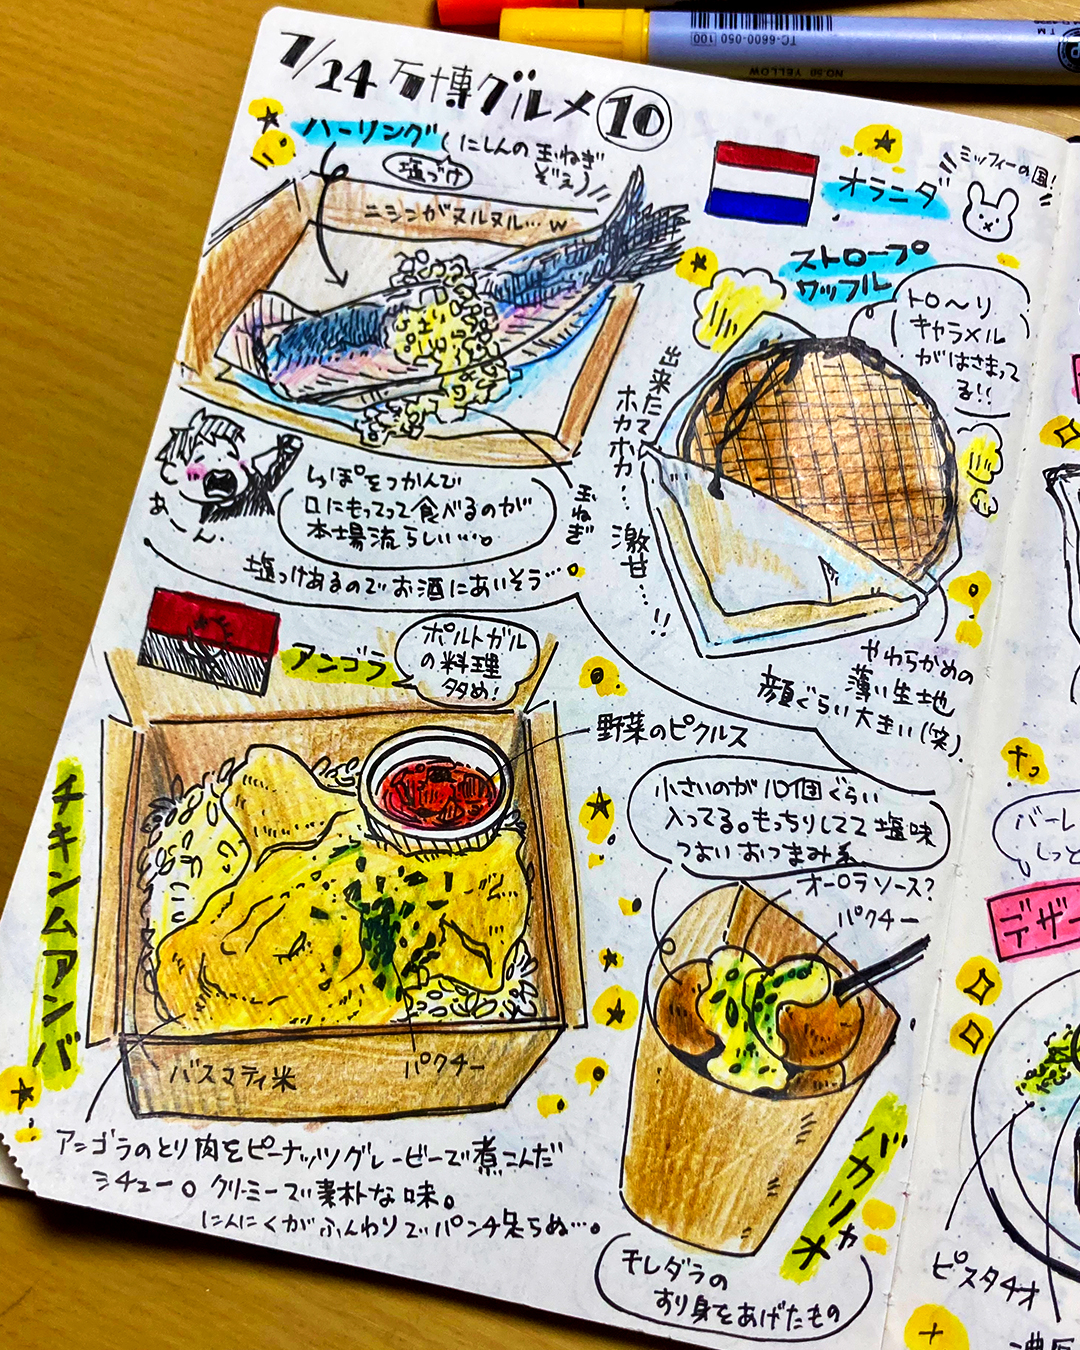 7/24 万博グルメ⑩
ハーリング
(にしんの玉ねぎ
ぞえ)
塩づけ
ニシンがヌルヌル…w
しっぽをつかんで
口にもってって食べるのが
本場流らしい…。
あーん
玉ねぎ
塩っけあるのでお酒にあいそう…。
オランダ
ミッフィーの国!
ストロープ
ワッフル
トロ〜リ
キャラメル
がはさまって
る!!
出来たて
ホカホカ…
激甘…!!
やわらかめの
薄い生地
顔ぐらい大きい(笑)
アンゴラ
ポルトガル
の料理
多め!
チキンムアンバ
野菜のピクルス
バスマティ米
パクチー
アンゴラのとり肉をピーナッツグレービーで煮こんだ
シチュー。クリーミーで素朴な味。
にんにくがふんわりでパンチ足らぬ…。
小さいのが10個ぐらい
入ってる。もっちりしてて塩味
つよいおつまみ系
オーロラソース?
パクチー
バカリャオ
干しダラの
すり身をあげたもの
バーレ
しっと
デザー
ピスタチオ
濃厚
TC-6600-050
100
NO.50 YELLOW